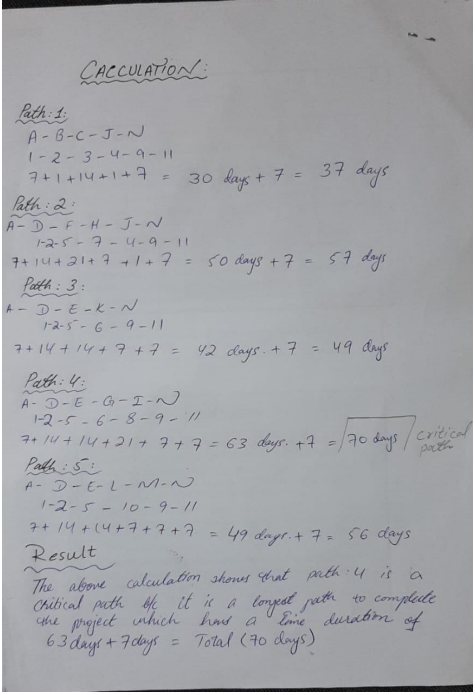 CALCULATION:
Path:1:
A-B-C-J-N
1-2-3-4-9-11
7+1+14+1+7 = 30 days + 7 = 37 days
Path:2:
A-D-F-H-J-N
1-2-5-7-4-9-11
7+14+21+7+1+7 = 50 days + 7 = 57 days
Path:3:
A-D-E-K-N
1-2-5-6-9-11
7+14+14+7+7 = 42 days. + 7 = 49 days
Path:4:
A-D-E-G-I-N
1-2-5-6-8-9-11
7+14+14+21+7+7 = 63 days. +7 = 70 days critical path
Path:5:
A-D-E-L-M-N
1-2-5-10-9-11
7+14+14+7+7+7 = 49 days. + 7 = 56 days
Result
The above calculation shows that path:4 is a
critical path b/c it is a longest path to complete
the project which have a time duration of
63 days + 7 days = Total (70 days)